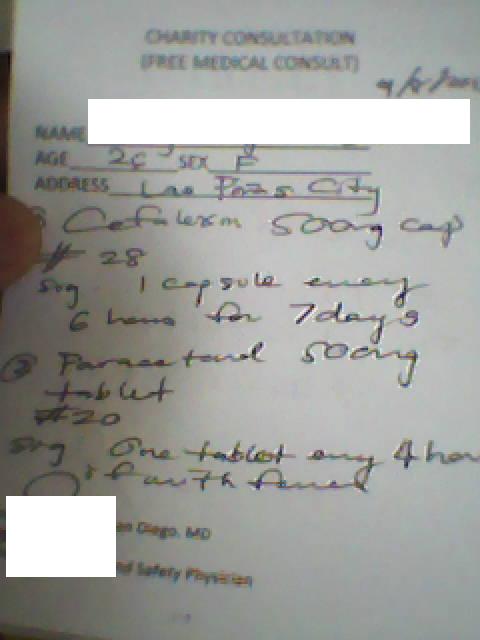 CHARITY CONSULTATION
(FREE MEDICAL CONSULT)
NAME
AGE 26 SEX F
ADDRESS Las Pinas City
Cefalexin 500mg cap
# 28
Sig 1 capsule every
6 hours for 7 days
② Paracetamol 500mg
tablet
#20
Sig One tablet every 4 hou
if with fever
an Diego, MD
nd Safety Physician